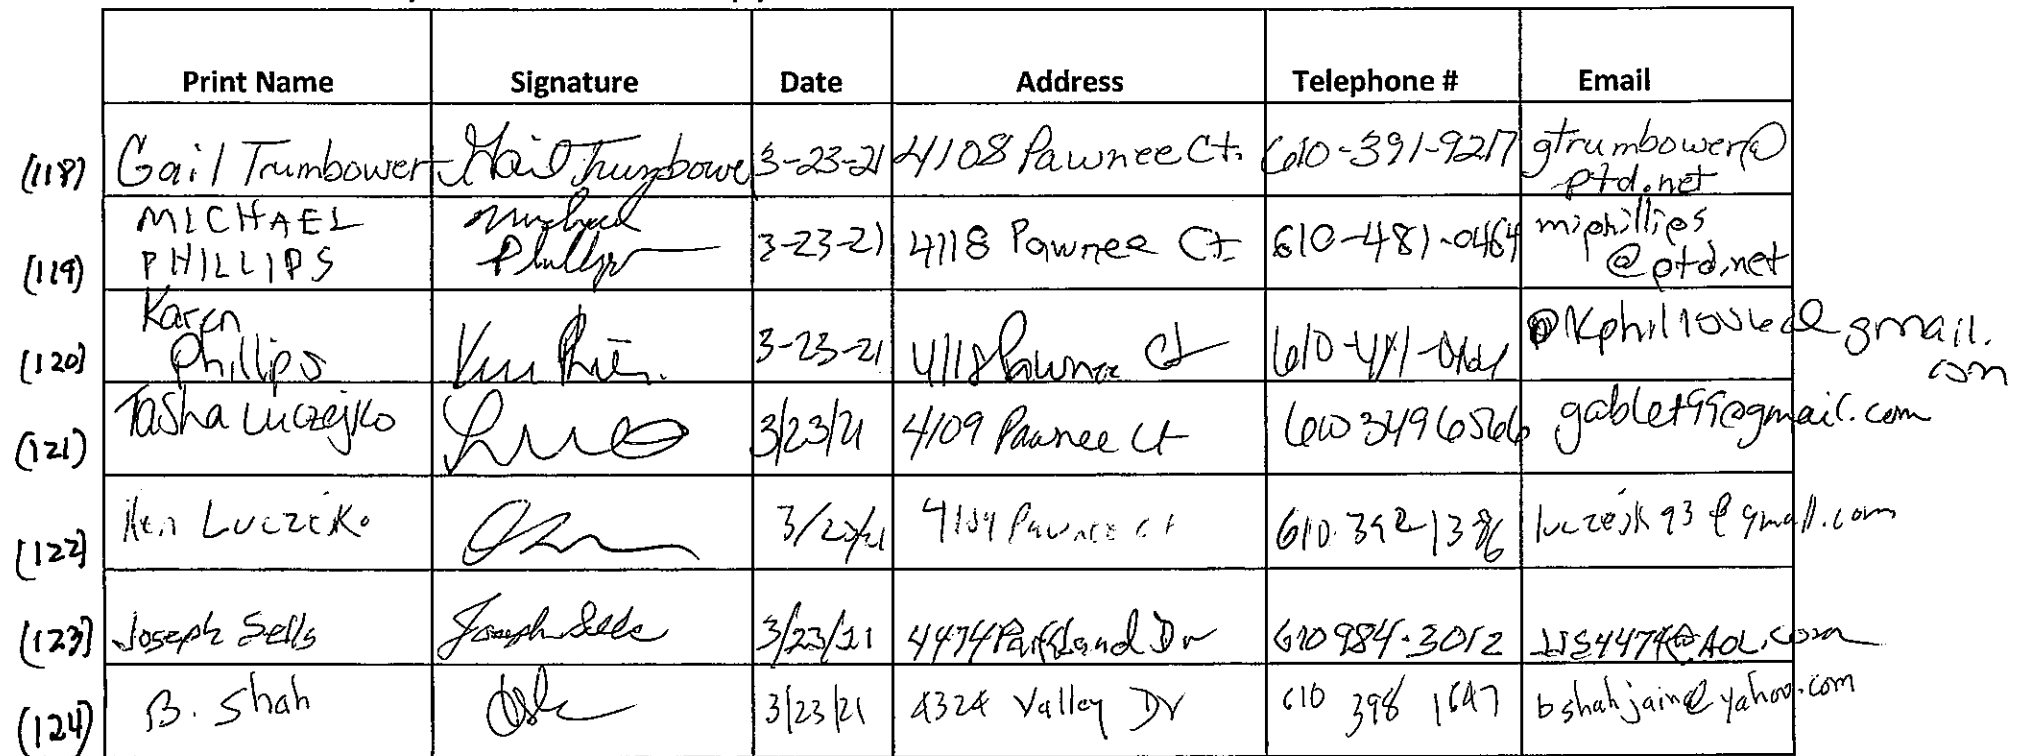 Print Name Signature Date Address Telephone # Email
(118) Gail Trumbower Gail Trumbower 3-23-21 4108 Pawnee Ct. 610-391-9217 gtrumbower@
ptd.net
MICHAEL Michael miphillips
(119) PHILLIPS Phillips 3-23-21 4118 Pawnee Ct 610-481-0464 @ptd.net
Karen
(120) Phillips 3-23-21 4118 Pawnee Ct gmail.
com
(121) Tasha Luczejko 3/23/21 4109 Pawnee Ct 610 349 6566 gablet99@gmail.com
(122) Pawnee Ct 610.392 1386
(123) Joseph Sells Joseph Sells 3/23/21 4474 Parkland Dr 610 984-3012 JJS4474@AOL.com
(124) B. Shah 3/23/21 4324 Valley Dr 610 398 1647 bshahjain@yahoo.com